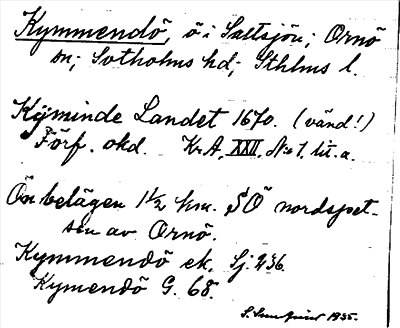 Kymmendö, ö i Saltsjön; Ornö
sn; Sotholms hd; Sthlms l.
Kÿminde Landet 1670. (vänd!)
Förf. okd. Kr.A. XXII. No 1. lit. a.
Ön belägen 1 1/2 km. SÖ nordspet-
sen av Ornö.
Kymmendö ek. Sj. 236.
Kymendö G. 68.
1935.